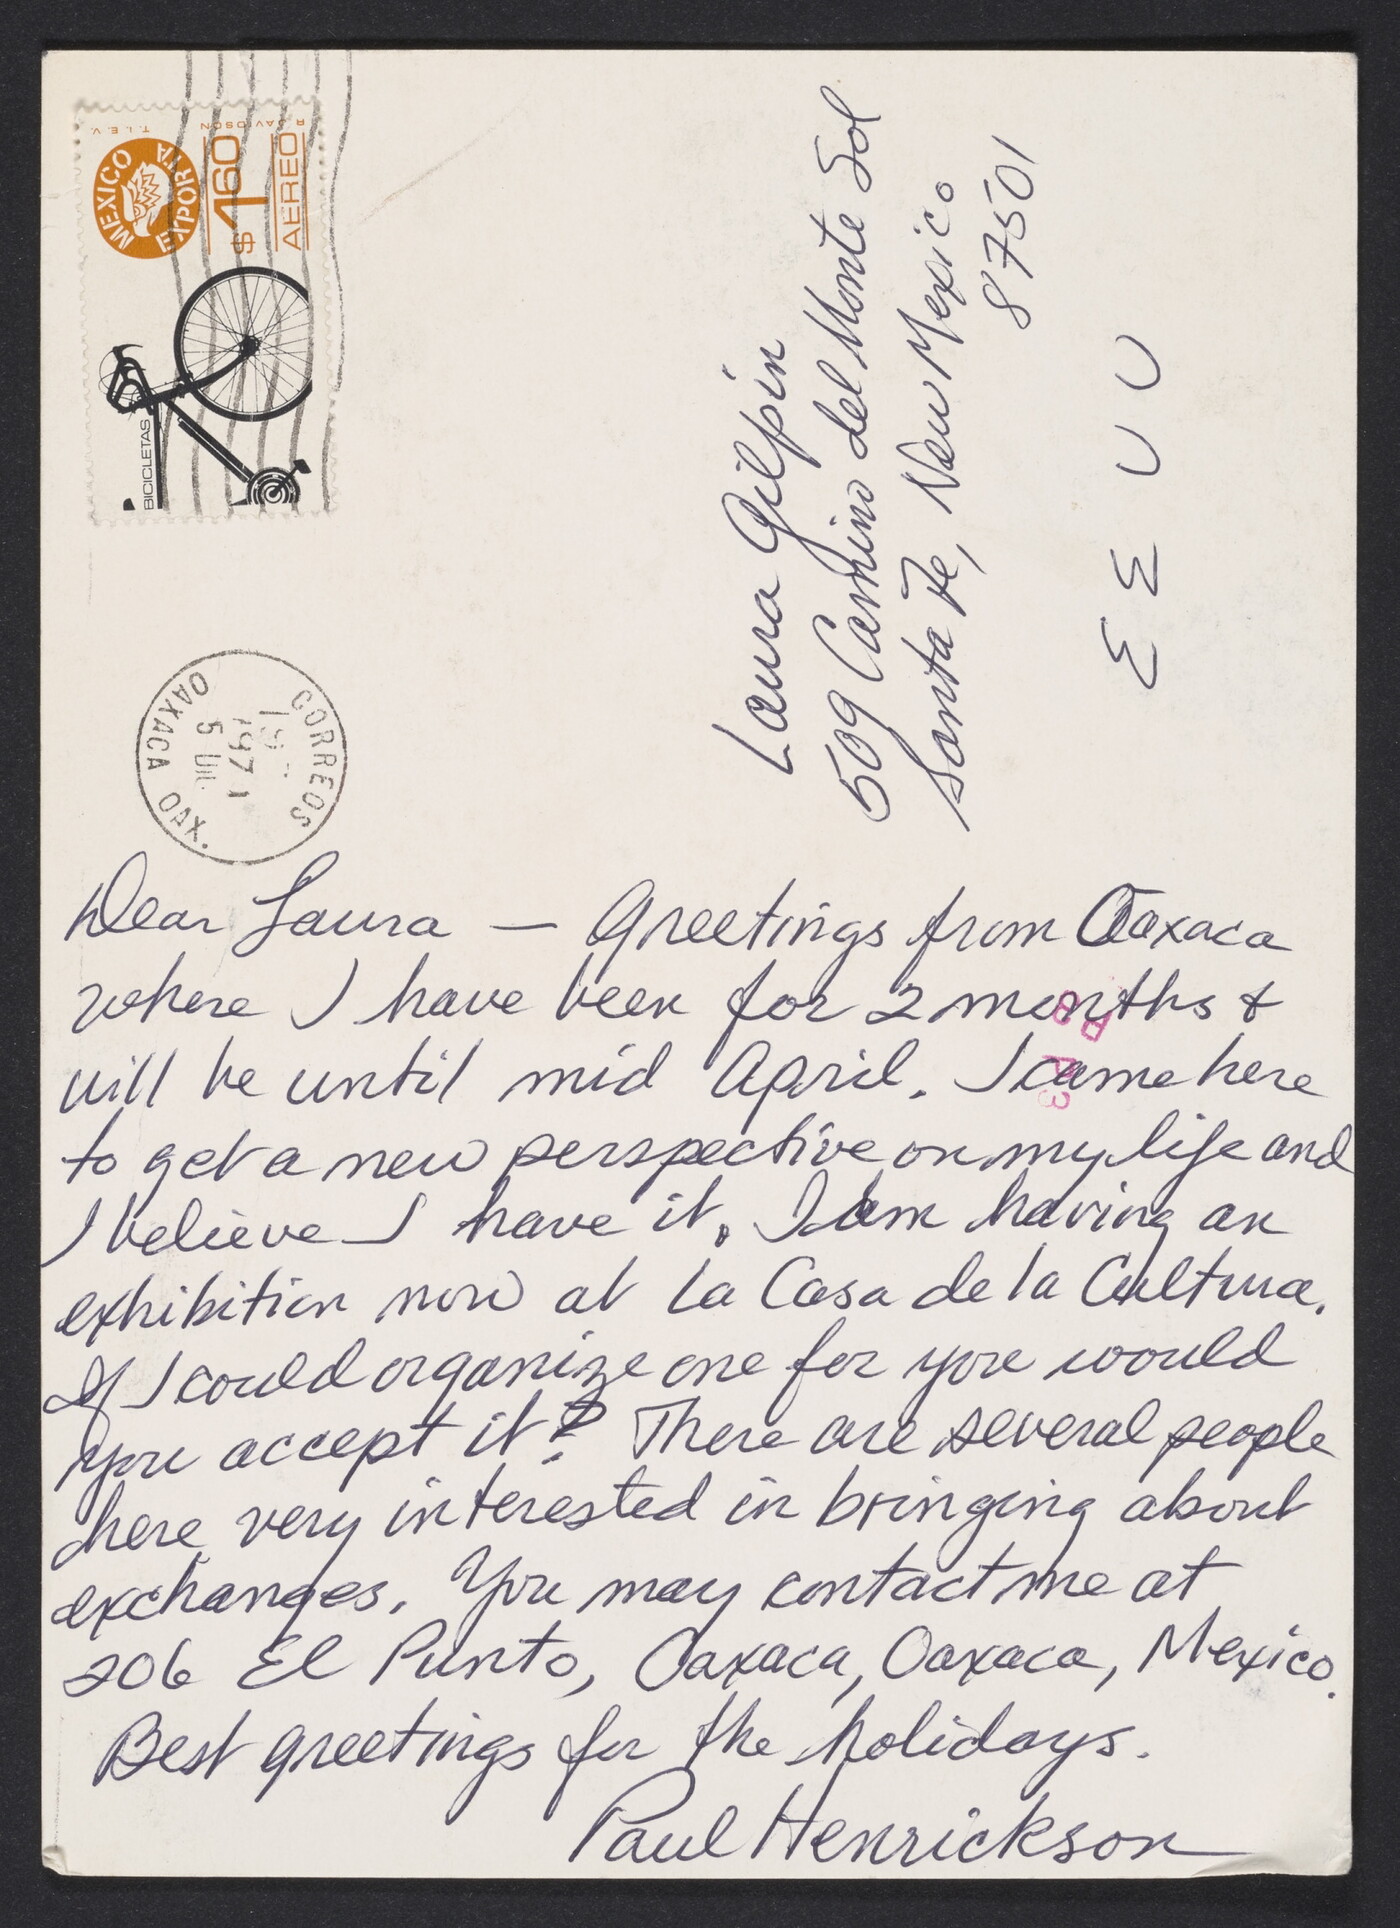 MEXICO EXPORTA
$1.60
AEREO
T.I.E.V.
R. DAVIDSON
BICICLETAS
CORREOS
197
OAXACA OAX.
Laura Gilpin
509 Camino del Monte Sol
Santa Fe, New Mexico
87501
E E U U
Dear Laura — Greetings from Oaxaca
where I have been for 2 months &
will be until mid April. I came here
to get a new perspective on my life and
I believe I have it. I am having an
exhibition now at La Casa de la Cultura.
If I could organize one for you would
you accept it? There are several people
here very interested in bringing about
exchanges. You may contact me at
206 El Punto, Oaxaca, Oaxaca, Mexico.
Best greetings for the holidays.
Paul Henrickson